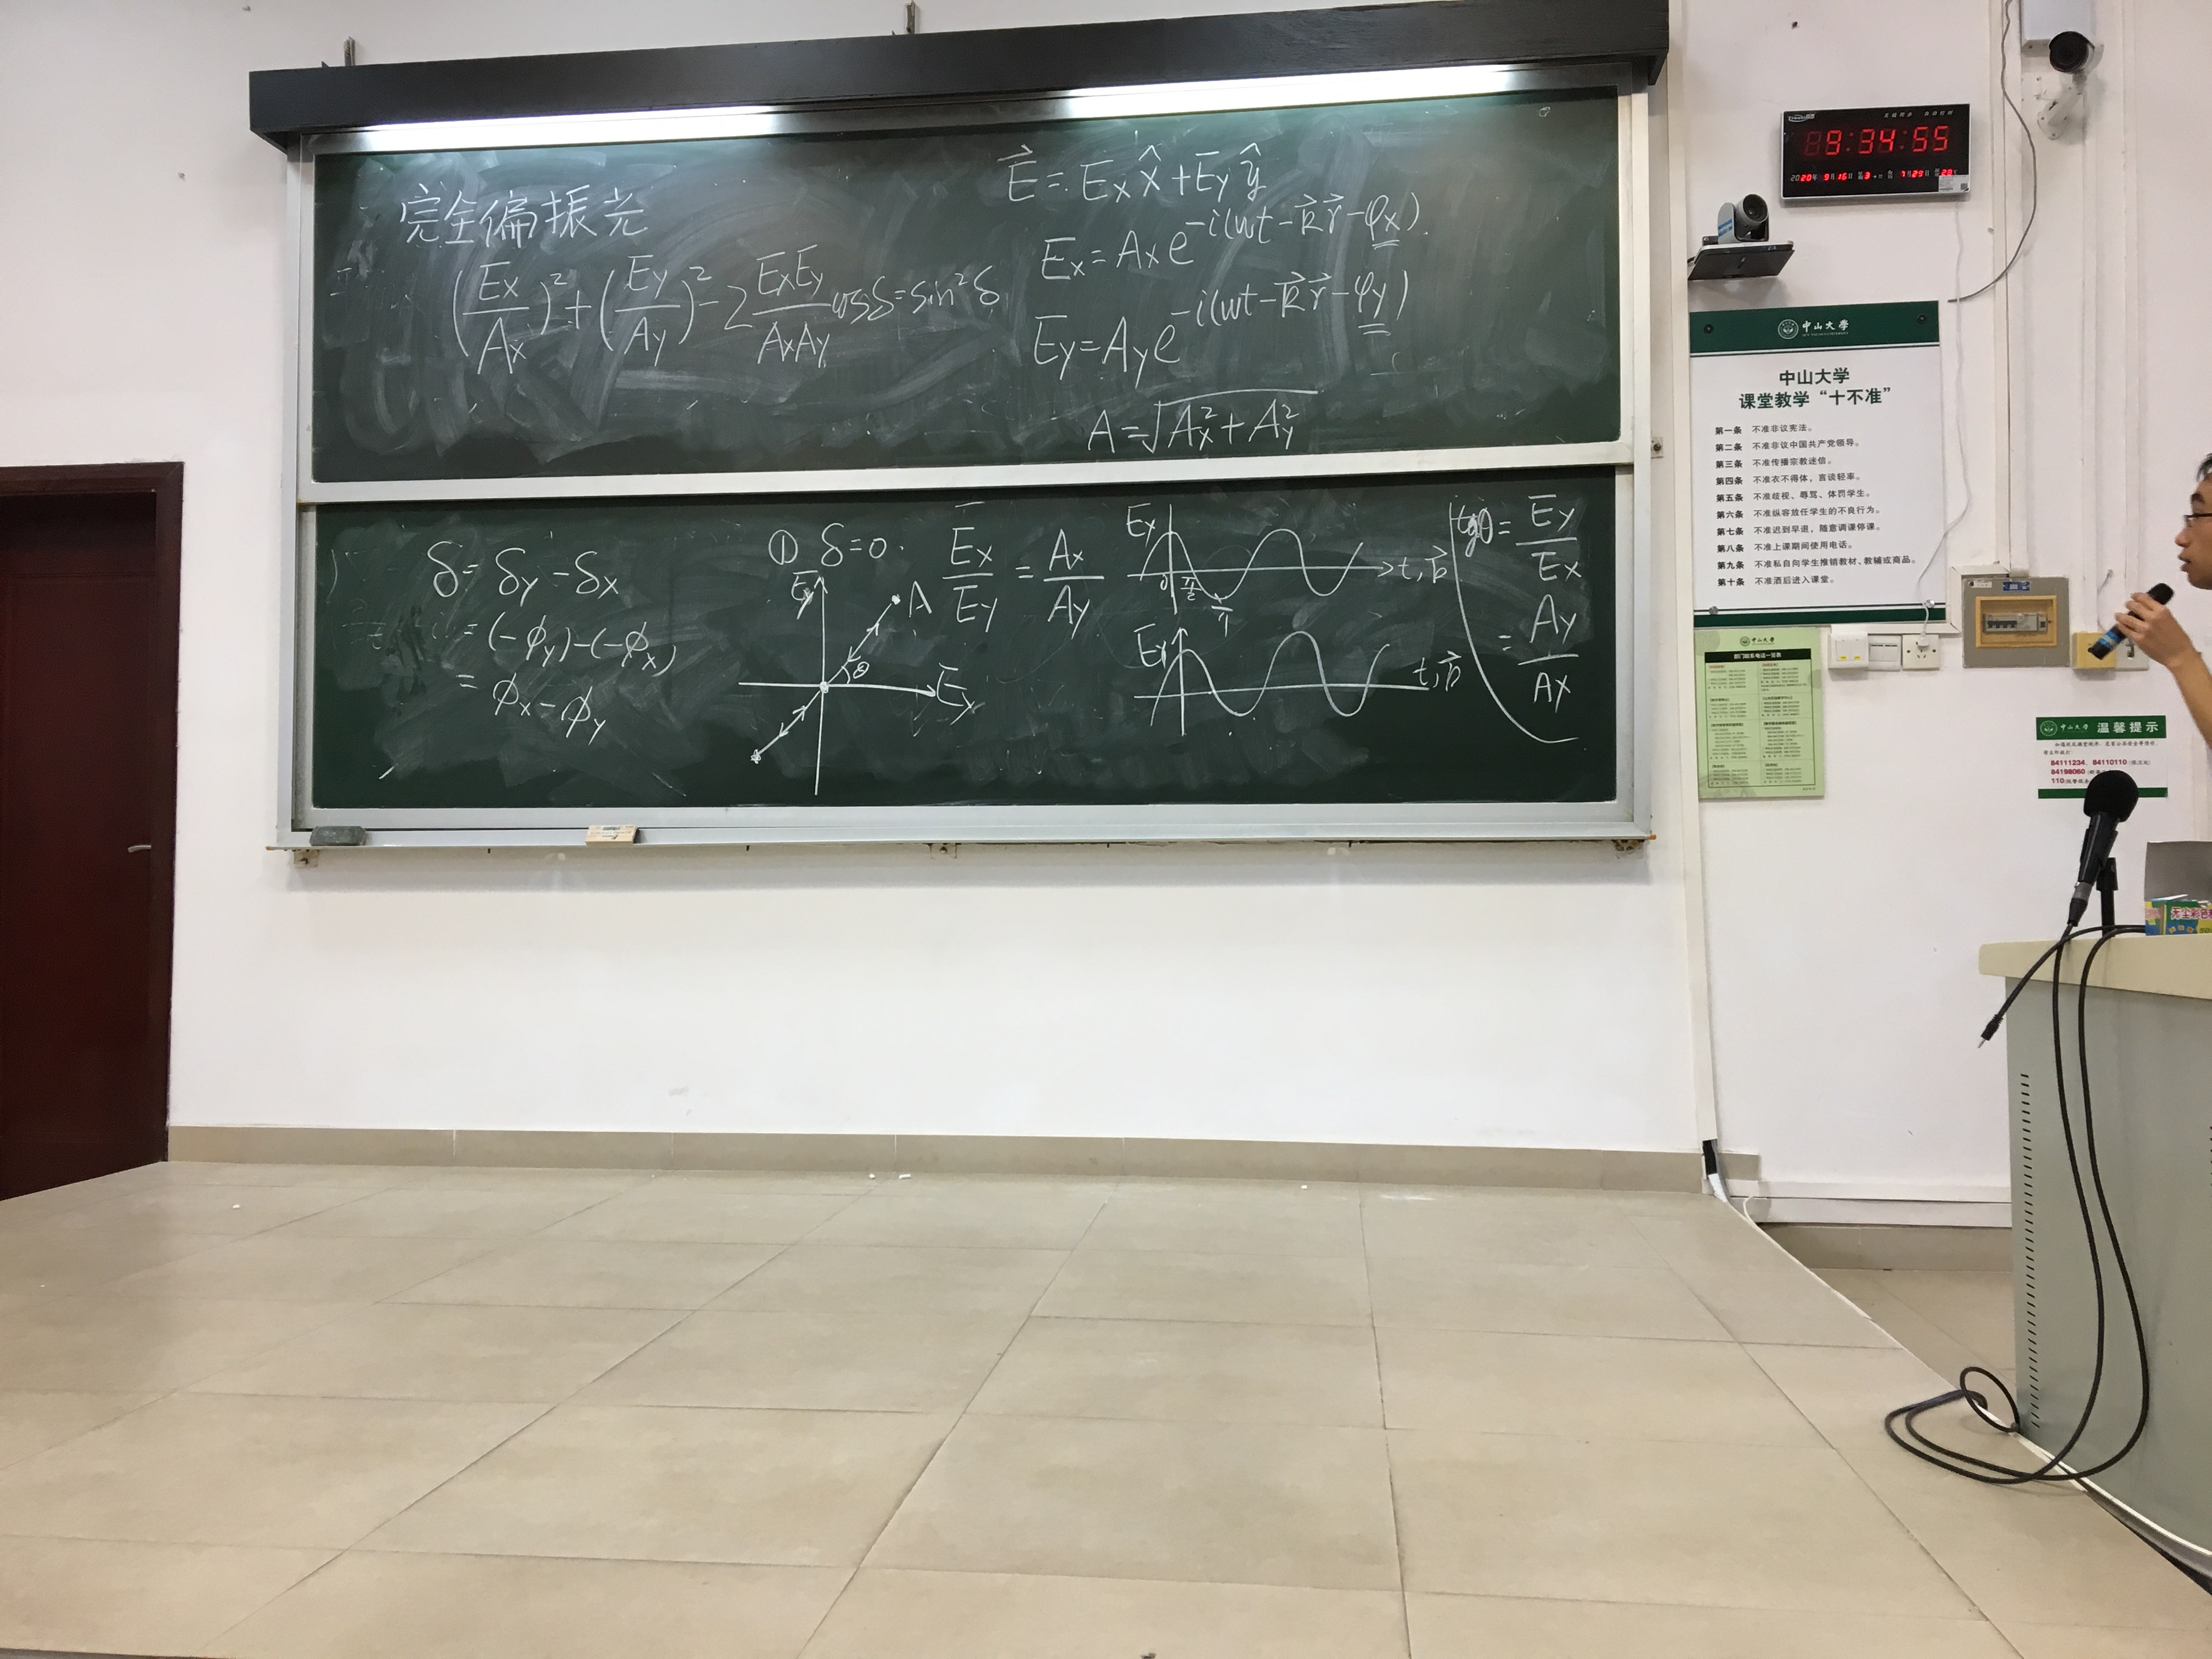 完全偏振光
(Ex/Ax)²+(Ey/Ay)²-2 ExEy/AxAy cosδ=sin²δ
E⃗ = Ex x̂+Ey ŷ
Ex=Ax e^-i(wt-k⃗r⃗-φx)
Ey=Ay e^-i(wt-k⃗r⃗-φy)
A=√(Ax²+Ay²)
δ=δy-δx
=(-ϕy)-(-ϕx)
=ϕx-ϕy
① δ=0.
Ex/Ey = Ax/Ay
Ey
A
θ
Ex
Ex
0
π/2
π
Ey
tgθ= Ey/Ex
= Ay/Ax
9:34:55
2020年 9月16日
中山大学
中山大学
课堂教学“十不准”
第一条 不准非议宪法。
第二条 不准非议中国共产党领导。
第三条 不准传播宗教迷信。
第四条 不准衣不得体，言谈轻率。
第五条 不准歧视、辱骂、体罚学生。
第六条 不准纵容放任学生的不良行为。
第七条 不准迟到早退，随意调课停课。
第八条 不准上课期间使用电话。
第九条 不准私自向学生推销教材、教辅或商品。
第十条 不准酒后进入课堂。
中山大学
部门联系电话一览表
中山大学 温馨提示
84111234、84110110
84198060
110